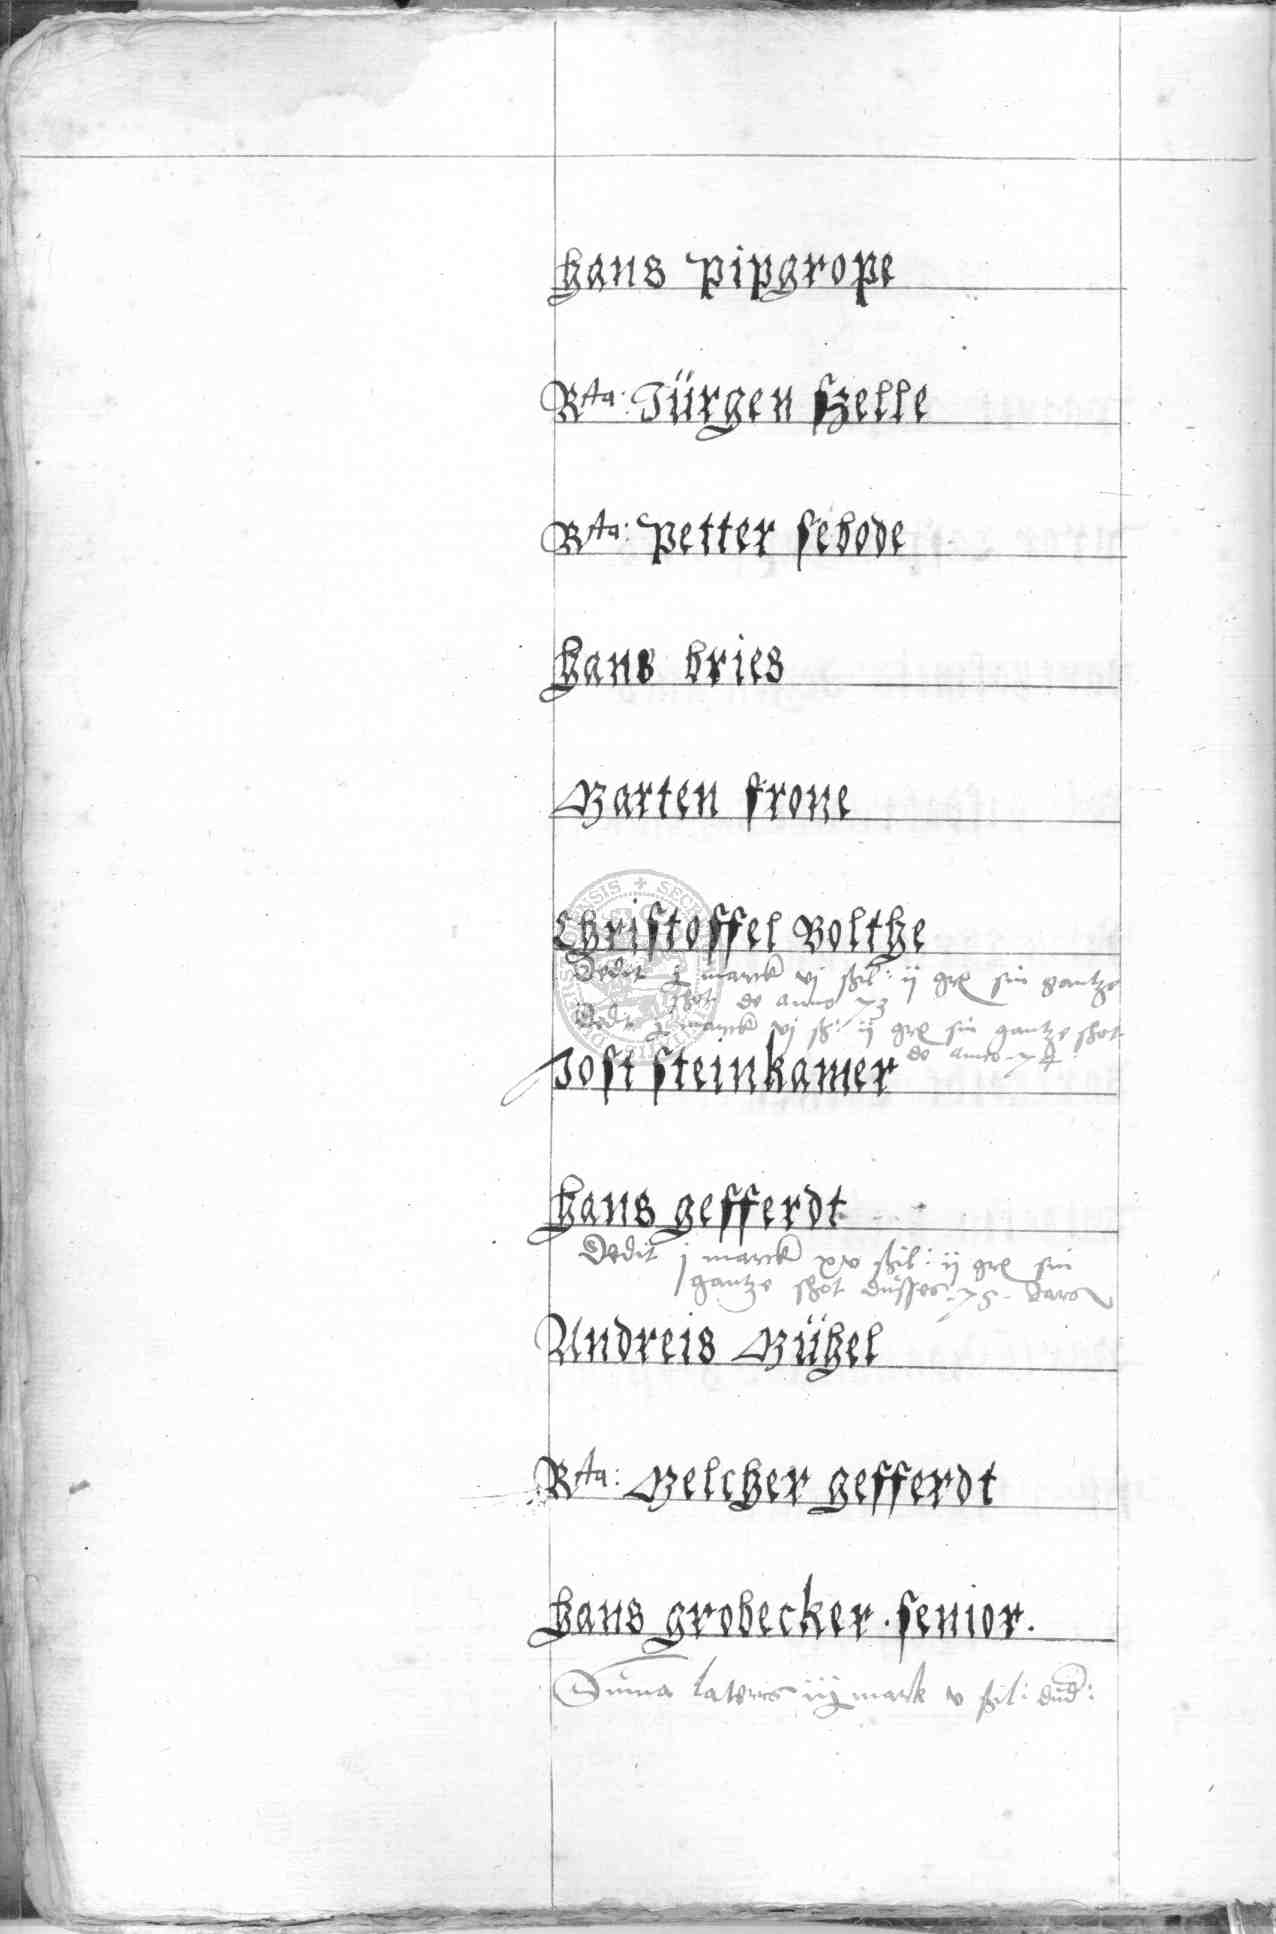 hans pipgrope
Rta: Jürgen szelle
Rta: Petter sebode
hans bries
Marten frone
Christoffel Bolthe
Dedit j marck vj shil: ij gre sin gantze
shot de anno 73
Dedit j marck vj sh: ij gre sin gantze shot
de anno 74
Jost steinkamer
hans gefferdt
Dedit j marck xv shil: ij gre sin
gantze shot dusses 75 Jares
Andreis Mühel
Rta: Melcher gefferdt
hans grobecker. senior.
Suma lateris iij mark v shil: